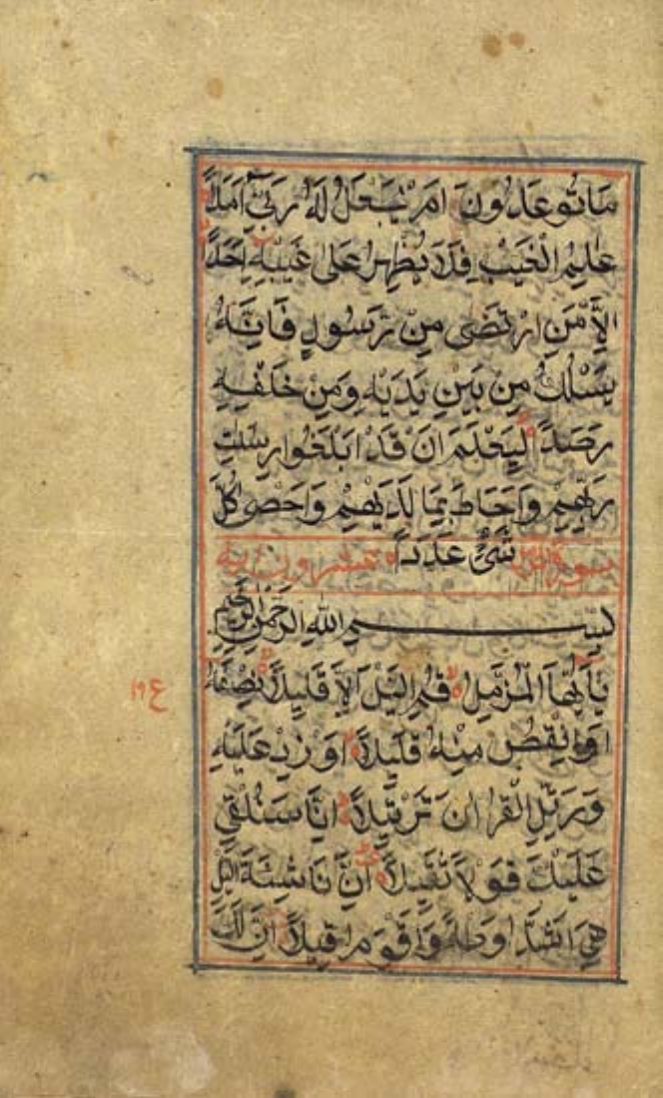 مَاتُوعَدُونَ اَمْ يَجْعَلُ لَهُ رَبِّىٓ اَمَدًا
عَالِمُ الْغَيْبِ فَلَا يُظْهِرُ عَلٰى غَيْبِهٖ اَحَدًا
اِلَّا مَنِ ارْتَضٰى مِنْ رَسُولٍ فَاِنَّهُ
يَسْلُكُ مِنْ بَيْنِ يَدَيْهِ وَمِنْ خَلْفِهٖ
رَصَدًا لِيَعْلَمَ اَنْ قَدْ اَبْلَغُوا رِسٰلٰتِ
رَبِّهِمْ وَاَحَاطَ بِمَا لَدَيْهِمْ وَاَحْصٰى كُلَّ
شَىْءٍ عَدَدًا
سورة عشرون آية
بِسْمِ اللهِ الرَّحْمٰنِ الرَّحِيمِ
يَآ اَيُّهَا الْمُزَّمِّلُ قُمِ الَّيْلَ اِلَّا قَلِيلًا نِصْفَهُ
اَوِ انْقُصْ مِنْهُ قَلِيلًا اَوْ زِدْ عَلَيْهِ
وَرَتِّلِ الْقُرْاٰنَ تَرْتِيلًا اِنَّا سَنُلْقِى
عَلَيْكَ قَوْلًا ثَقِيلًا اِنَّ نَاشِئَةَ الَّيْلِ
هِىَ اَشَدُّ وَطْئًا وَاَقْوَمُ قِيلًا اِنَّ لَكَ
ع ١٢